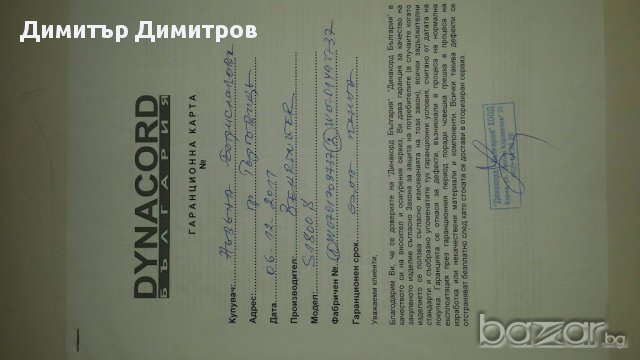 Димитър Димитров
DYNACORD
БЪЛГАРИЯ
ГАРАНЦИОННА КАРТА
№
Купувач: Борислав
Адрес: гр. Търговище
Дата 06.12.2011
Производител:
Модел: S 1800
Фабричен №
Гаранционен срок: една година
Уважаеми клиенти,
Благодарим Ви, че се доверихте на "Динакорд България" "Динакорд България" в
качеството си на вносител и осигурения сервиз, Ви дава гаранция за качество на
закупеното изделие съгласно Закона за защита на потребителите (в случаите когато
изделието се ползва съгласно изискванията на този закон), всички задължителни
стандарти и съобразно упоменатите тук гаранционни условия, считано от датата на
покупка. Гаранцията се отнася за дефекти, възникнали в процеса на нормална
експлоатация през гаранционния период поради човешка грешка в процеса на
изработка или некачествени материали и компоненти. Всички такива дефекти се
отстраняват безплатно след като стоката се достави в оторизиран сервиз.
"Динакорд България" ЕООД
bazar.bg